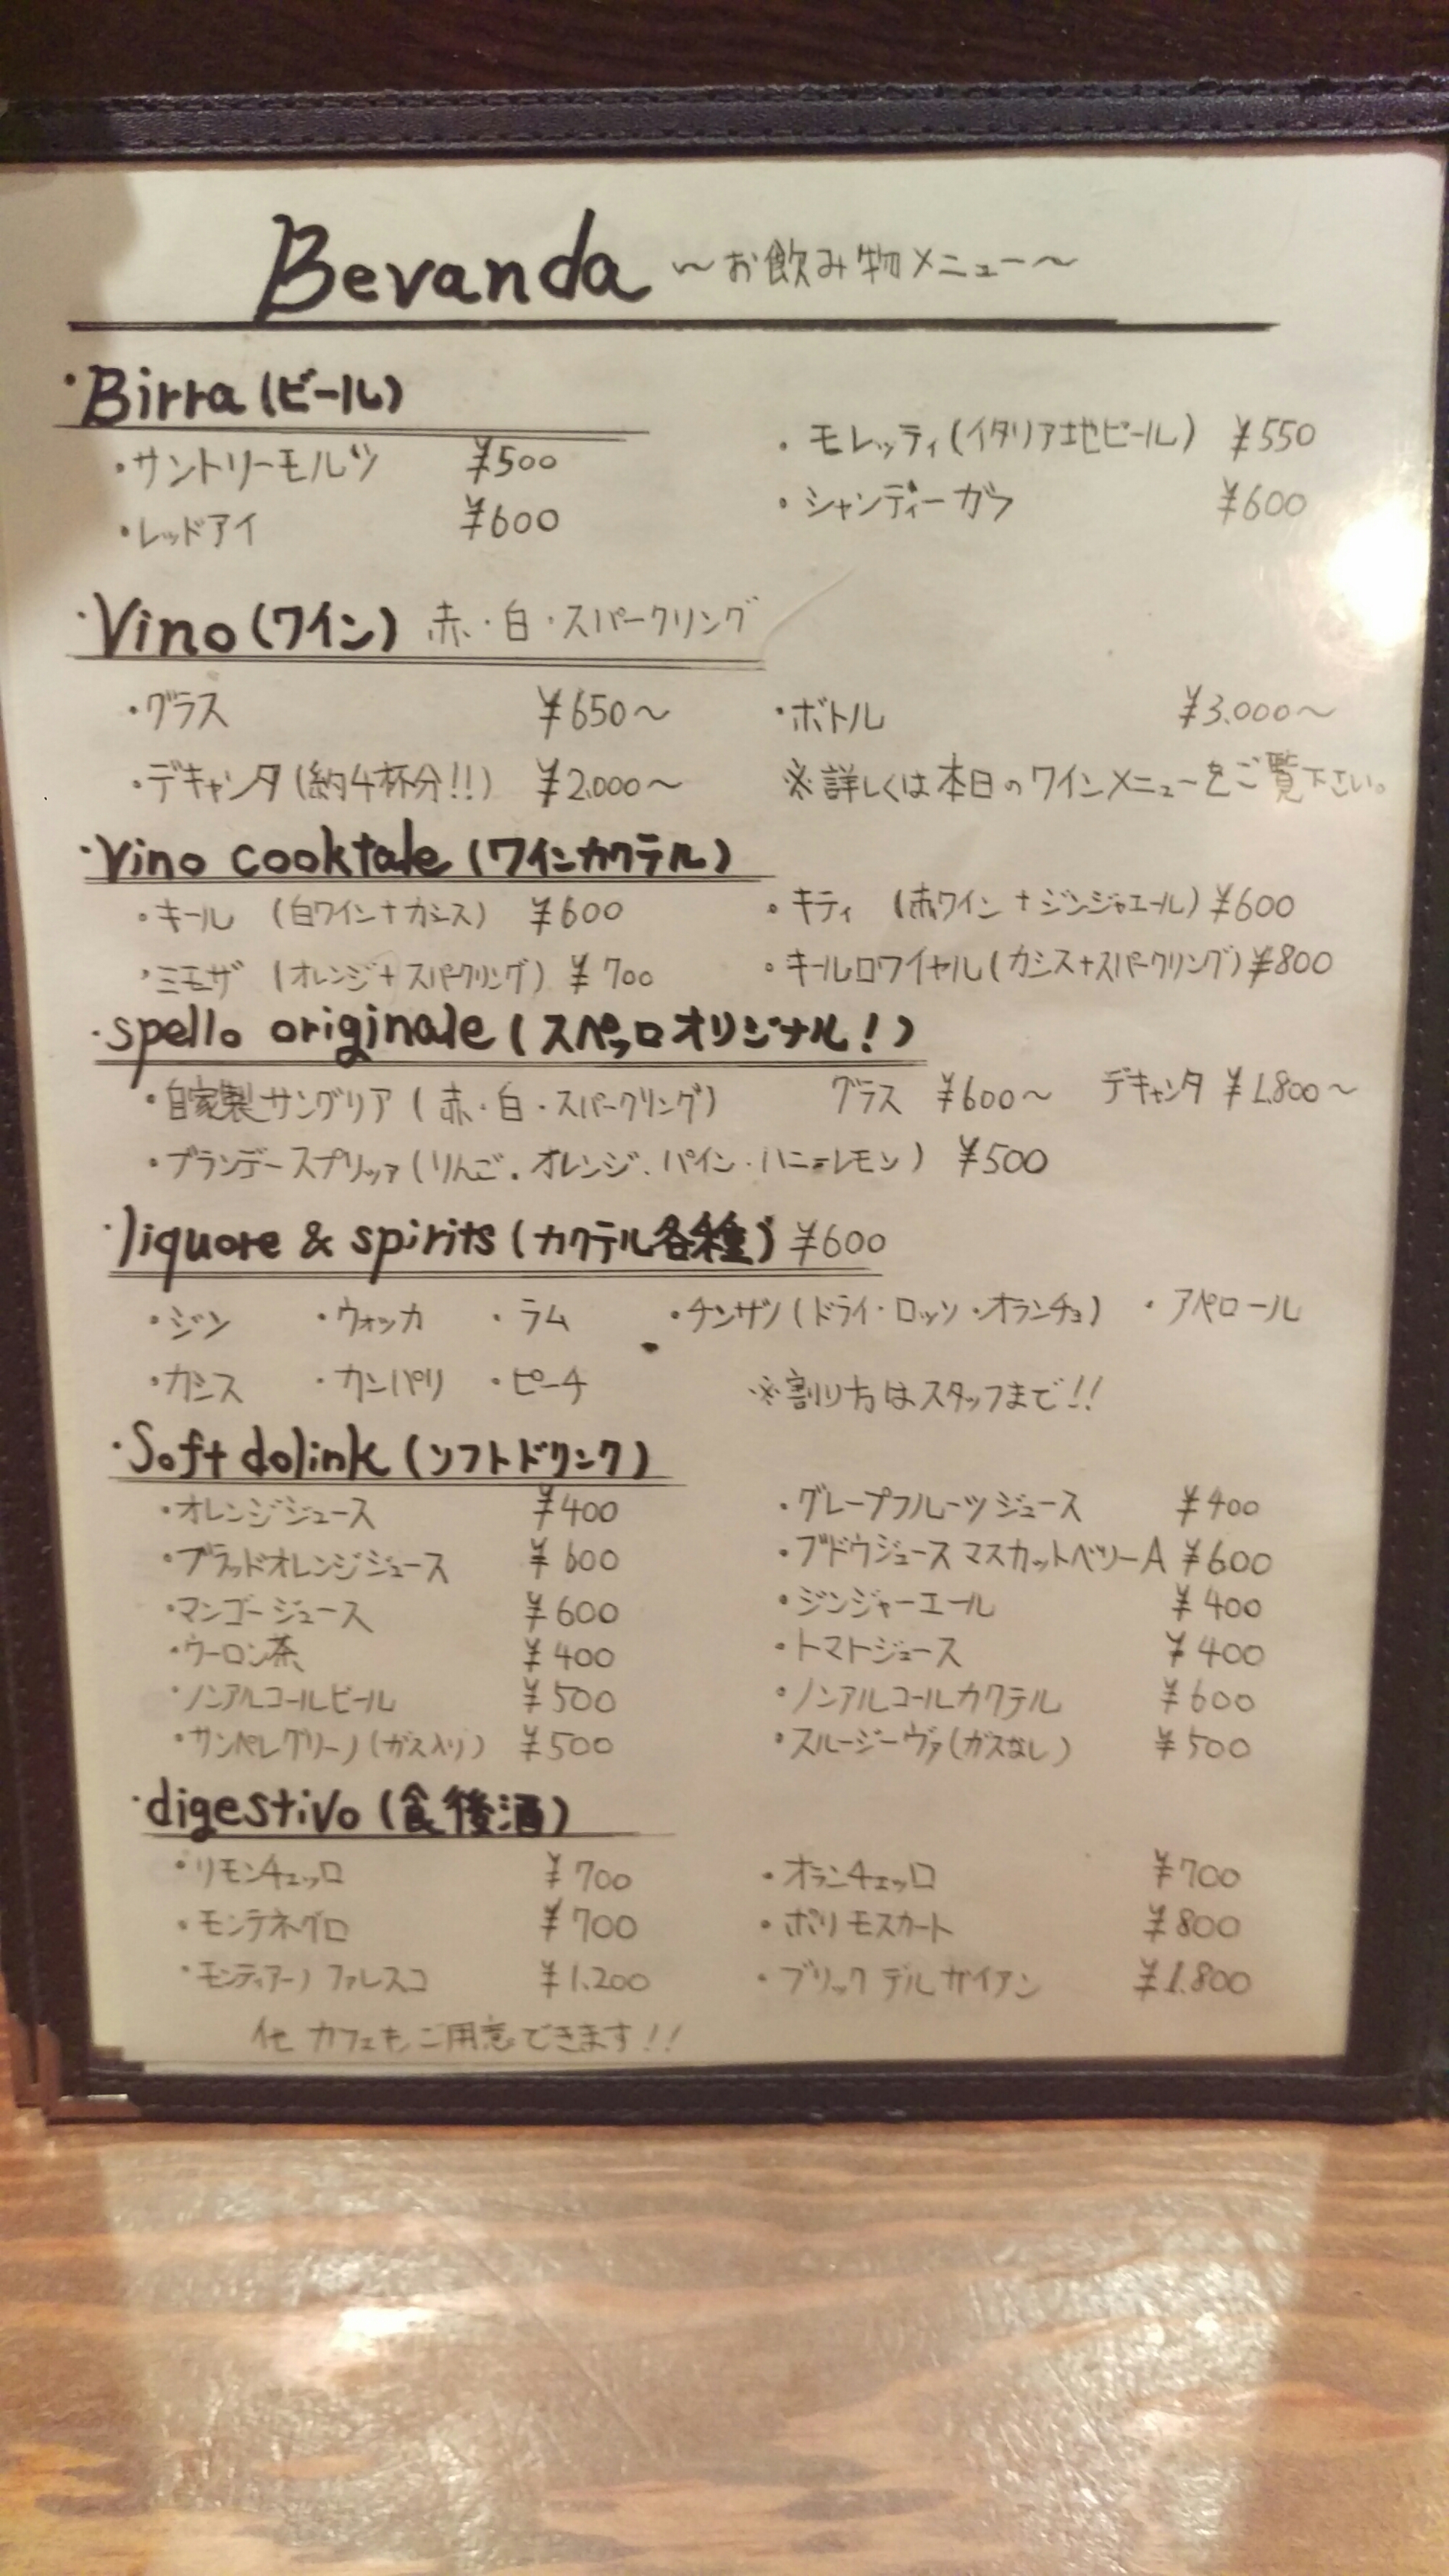 Bevanda ～お飲み物メニュー～
・Birra（ビール）
・サントリーモルツ ¥500 ・モレッティ（イタリア地ビール） ¥550
・レッドアイ ¥600 ・シャンディーガフ ¥600
・Vino（ワイン） 赤・白・スパークリング
・グラス ¥650～ ・ボトル ¥3.000～
・デキャンタ（約4杯分!!） ¥2.000～ ※詳しくは本日のワインメニューをご覧下さい。
・Vino cooktale（ワインカクテル）
・キール （白ワイン+カシス） ¥600 ・キティ （赤ワイン+ジンジャエール） ¥600
・ミモザ （オレンジ+スパークリング） ¥700 ・キールロワイヤル（カシス+スパークリング） ¥800
・spello originale（スペッロオリジナル！）
・自家製サングリア（赤・白・スパークリング） グラス ¥600～ デキャンタ ¥1.800～
・ブランデースプリッツァ（りんご．オレンジ．パイン・ハニーレモン） ¥500
・liquore & spirits（カクテル各種） ¥600
・ジン ・ウォッカ ・ラム ・チンザノ（ドライ・ロッソ・オランチョ） ・アペロール
・カシス ・カンパリ ・ピーチ ※割り方はスタッフまで!!
・Soft dolink（ソフトドリンク）
・オレンジジュース ¥400 ・グレープフルーツジュース ¥400
・ブラッドオレンジジュース ¥600 ・ブドウジュース マスカットベリーA ¥600
・マンゴージュース ¥600 ・ジンジャーエール ¥400
・ウーロン茶 ¥400 ・トマトジュース ¥400
・ノンアルコールビール ¥500 ・ノンアルコールカクテル ¥600
・サンペレグリーノ（ガス入り） ¥500 ・スルージーヴァ（ガスなし） ¥500
・digestivo（食後酒）
・リモンチェッロ ¥700 ・オランチェッロ ¥700
・モンテネグロ ¥700 ・ポリ モスカート ¥800
・モンティアーノ ファレスコ ¥1.200 ・ブリック デル ガイアン ¥1.800
他 カフェもご用意できます!!